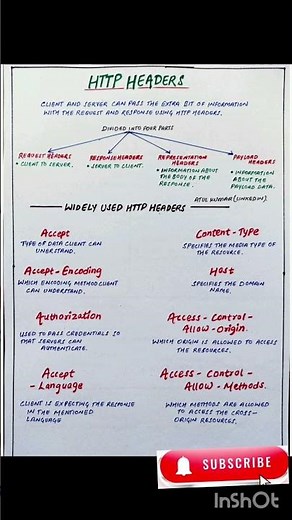 HTTP HEADERS
CLIENT AND SERVER CAN PASS THE EXTRA BIT OF INFORMATION
WITH THE REQUEST AND RESPONSE USING HTTP HEADERS.
DIVIDED INTO FOUR PARTS
REQUEST HEADERS
• CLIENT TO SERVER.
RESPONSE HEADERS
• SERVER TO CLIENT.
REPRESENTATION
HEADERS
• INFORMATION ABOUT
THE BODY OF THE
RESPONSE.
PAYLOAD
HEADERS
• INFORMATION
ABOUT THE
PAYLOAD DATA.
ATUL KUMAR (LINKEDIN).
WIDELY USED HTTP HEADERS
Accept
TYPE OF DATA CLIENT CAN
UNDERSTAND.
Content-Type
SPECIFIES THE MEDIA TYPE OF
THE RESOURCE.
Accept-Encoding
WHICH ENCODING METHOD CLIENT
CAN UNDERSTAND.
Host
SPECIFIES THE DOMAIN
NAME.
Authorization
USED TO PASS CREDENTIALS SO
THAT SERVERS CAN
AUTHENTICATE.
Access-Control-
Allow-Origin.
WHICH ORIGIN IS ALLOWED TO ACCESS
THE RESOURCES.
Accept
-Language
CLIENT IS EXPECTING THE RESPONSE
IN THE MENTIONED
LANGUAGE
Access-Control-
Allow-Methods.
WHICH METHODS ARE ALLOWED
TO ACCESS THE CROSS-
ORIGIN RESOURCES.
SUBSCRIBE
InShOt